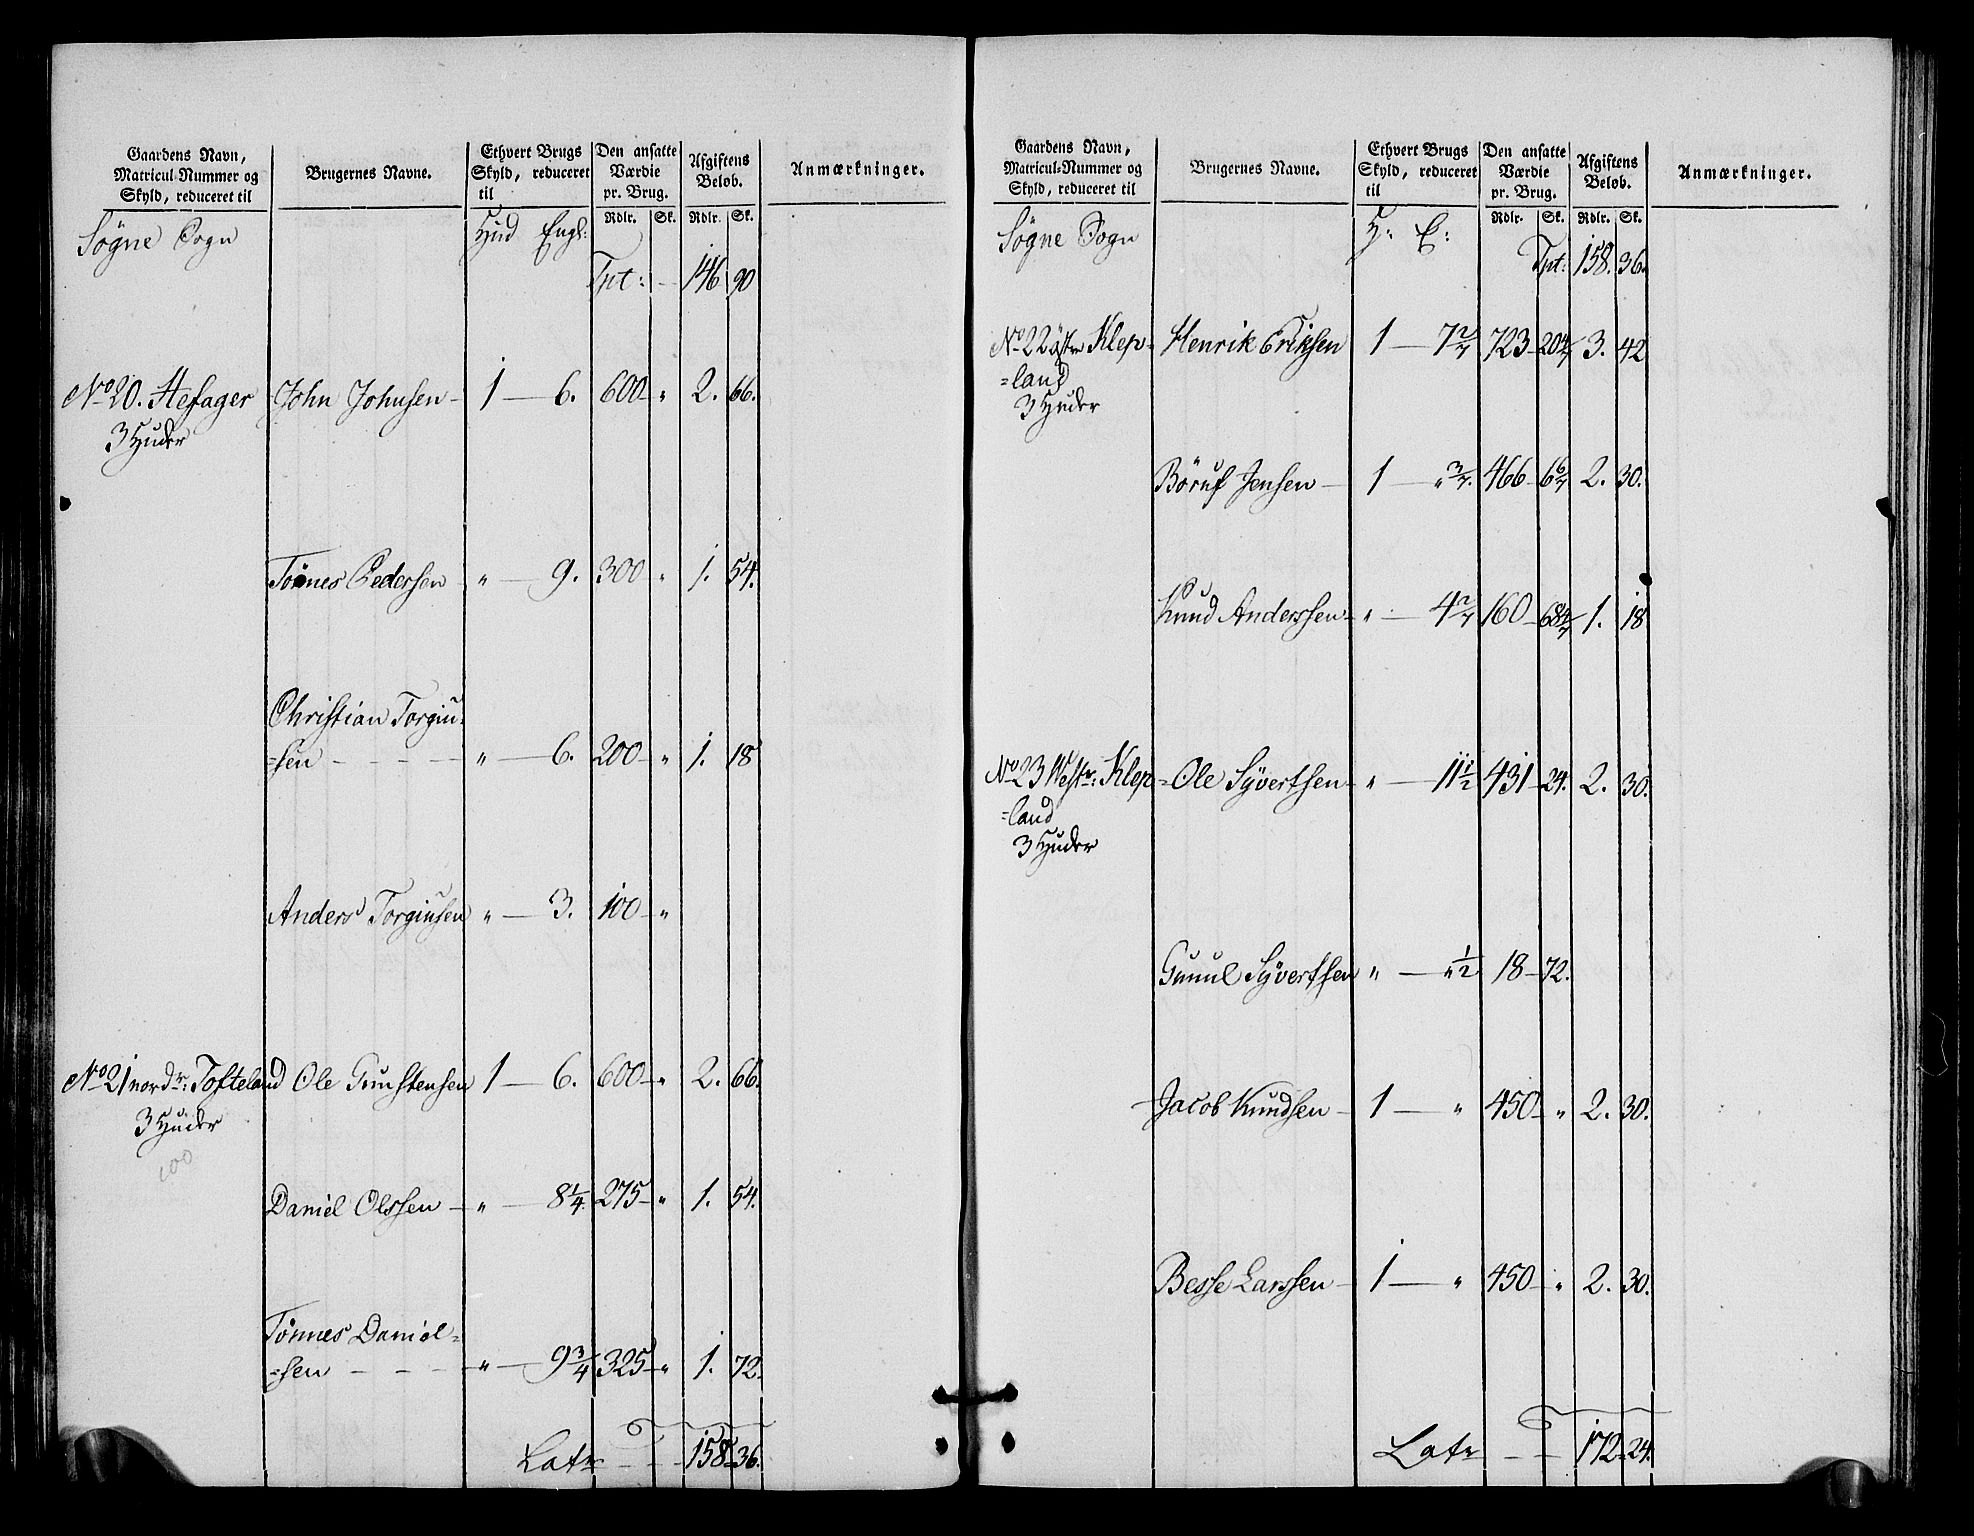 Gaardens Navn, Matricul-Nummer og Skyld, reduceret til | Brugernes Navne. | Ethvert Brugs Skyld, reduceret til | Den ansatte Værdie pr. Brug. | Afgiftens Beløb. | Anmærkninger.
Rdlr. | Sk. | Rdlr. | Sk.
Søgne Sogn | Hud Engl:
Tpt: — 146 90
No 20. Hefager John Johnsen — 1 — 6. 600 — " 2. 66.
3 Huder
Tönnes Pedersen " — 9. 300 " 1. 54.
Christian Torgiu-
=sen — — — — " — 6. 200 — " 1. 18
Anders Torgiusen " — 3. 100 — "
No 21 nordr: Tofteland Ole Gunstensen 1 — 6. 600 — " 2. 66.
3 Huder
100
Daniel Olssen — " — 8 1/4 275 — " 1. 54.
Tönnes Daniel=
=sen — — — " — 9 3/4 325 — " 1. 72.
Latr — — 158 36.
Gaardens Navn, Matricul-Nummer og Skyld, reduceret til | Brugernes Navne. | Ethvert Brugs Skyld, reduceret til | Den ansatte Værdie pr. Brug. | Afgiftens Beløb. | Anmærkninger.
Rdlr. | Sk. | Rdlr. | Sk.
Søgne Sogn | H: E:
Tpt: 158. 36.
No 22 östr Klep= Henrik Eriksen 1 — 7 2/7 723 — 20 4/7 3. 42
=land
3 Huder
Böruf Jensen — 1 — " 3/7. 466 — 6 6/7 2. 30.
Knud Anderssen — " — 4 2/7 160 — 68 4/7 1. 18
No 23 Vestr: Klep= Ole Syvertsen — " — 11 1/2 431 — 24. 2. 30.
=land
3 Huder
Gunul Syvertsen " — " 1/2 18 — 72.
Jacob Knudsen — 1 — " 450 — " 2. 30.
Besse Larssen — 1 — " 450 — " 2. 30.
Latr — — 172 24.